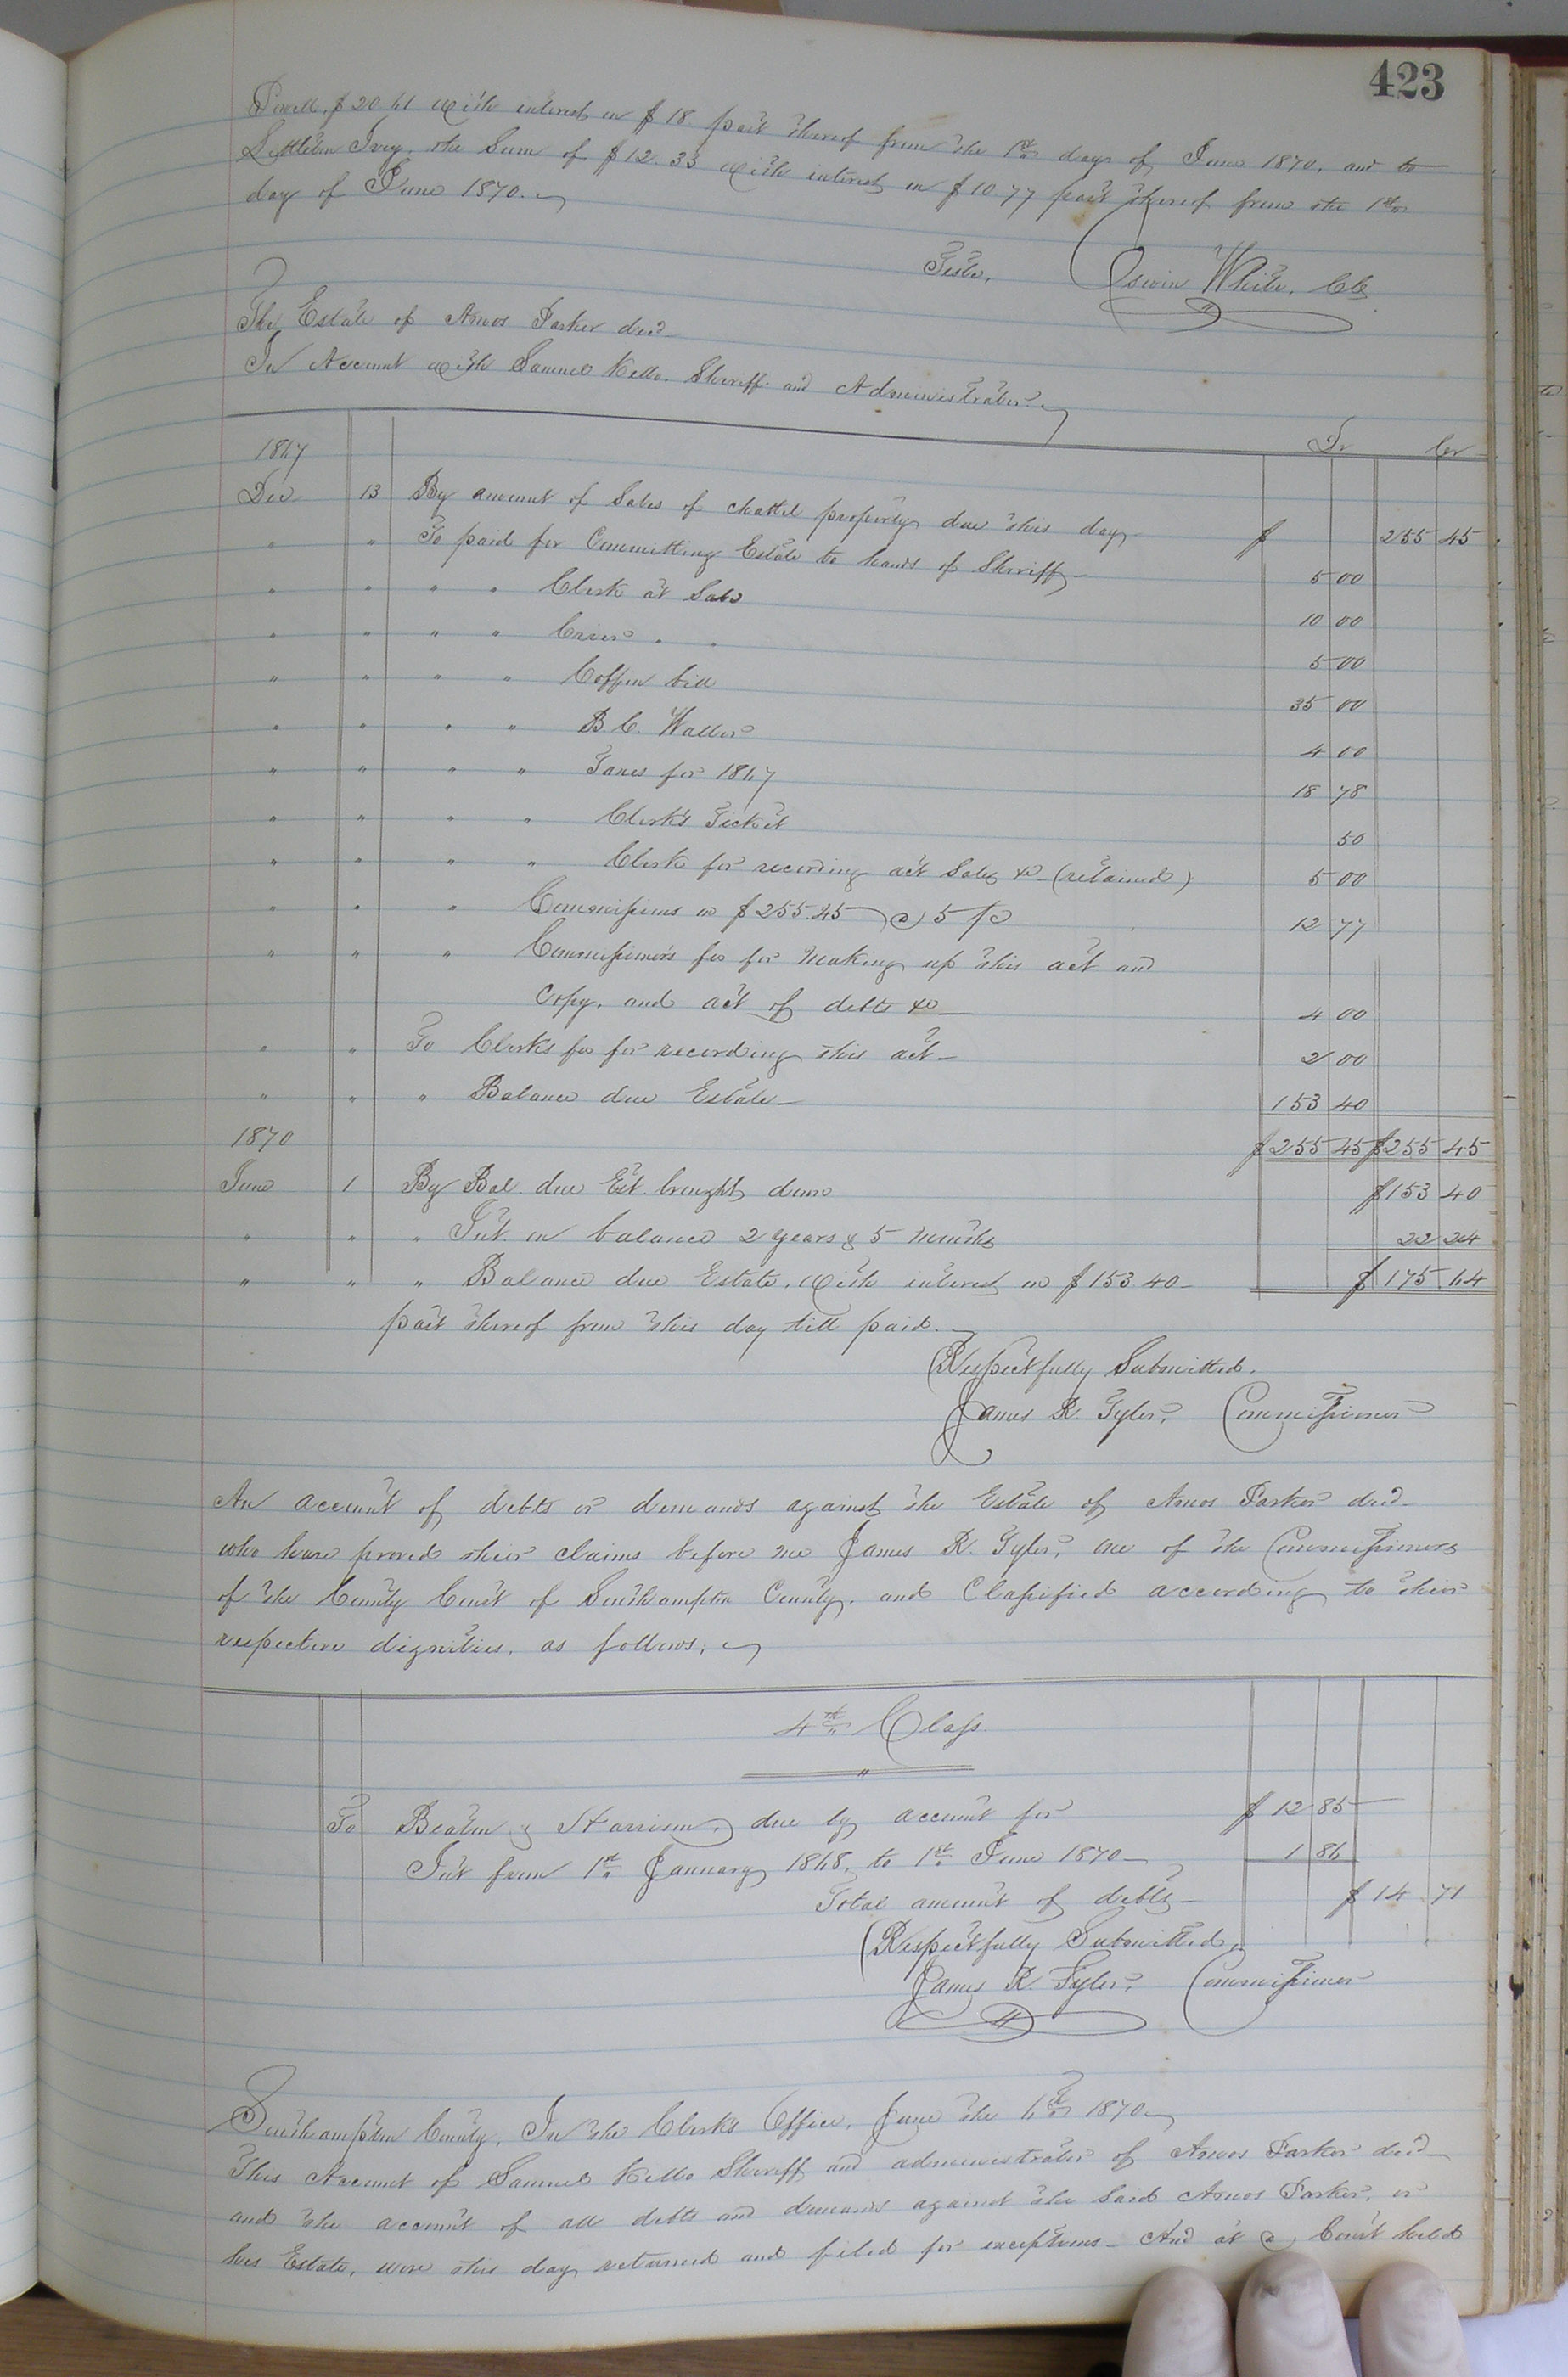 423
Powell, $20.61 with interest on $18. part thereof from the 1st day of June 1870, and to
Littleton Ivey, the Sum of $12.33 with interest on $10.77 part thereof from the 1st
day of June 1870.
Teste, Edwin White, CC
The Estate of Amos Parker decd
In Account with Samuel Kello. Sheriff. and Administrator.
Dr Cr
1867
Dec 13 By amount of Sales of chattel property due this day $ 255 45
" " To paid for Committing Estate to hands of Sheriff 5 00
" " " " Clerk at Sale 10 00
" " " " Crier " " 5 00
" " " " Coffin bill 35 00
" " " " B. C. Waller 4 00
" " " " Taxes for 1867 18 78
" " " " Clerk's Ticket 50
" " " " Clerk for recording act Sales &c (retained) 5 00
" " " Commissions on $255.45 @ 5 pc 12 77
" " " Commissioner's fee for making up this act and
Copy, and act of debts &c 4 00
" " To Clerks fee for recording this act 2 00
" " " Balance due Estate 153 40
1870 $255 45 $255 45
June 1 By Bal. due Est. brought down $153 40
" " " Int. on balance 2 years & 5 months 22 24
" " " Balance due Estate, with interest on $153.40 $175 64
part thereof from this day till paid.
Respectfully Submitted.
James R. Tyler, Commissioner
An account of debts or demands against the Estate of Amos Parker decd
who have proved their claims before me James R. Tyler, one of the Commissioners
of the County Court of Southampton County, and Classified according to their
respective dignities, as follows,
4th Class.
To Beaton & Harrison, due by account for $12 85
Int from 1st January 1868, to 1st June 1870 1 86
Total amount of debts $14 71
Respectfully Submitted,
James R. Tyler, Commissioner
Southampton County, In the Clerk's Office, June the 6th 1870
This Account of Samuel Kello Sheriff and administrator of Amos Parker decd
and the account of all debts and demands against the Said Amos Parker, or
his Estate, were this day returned and filed for exceptions. And at a Court held